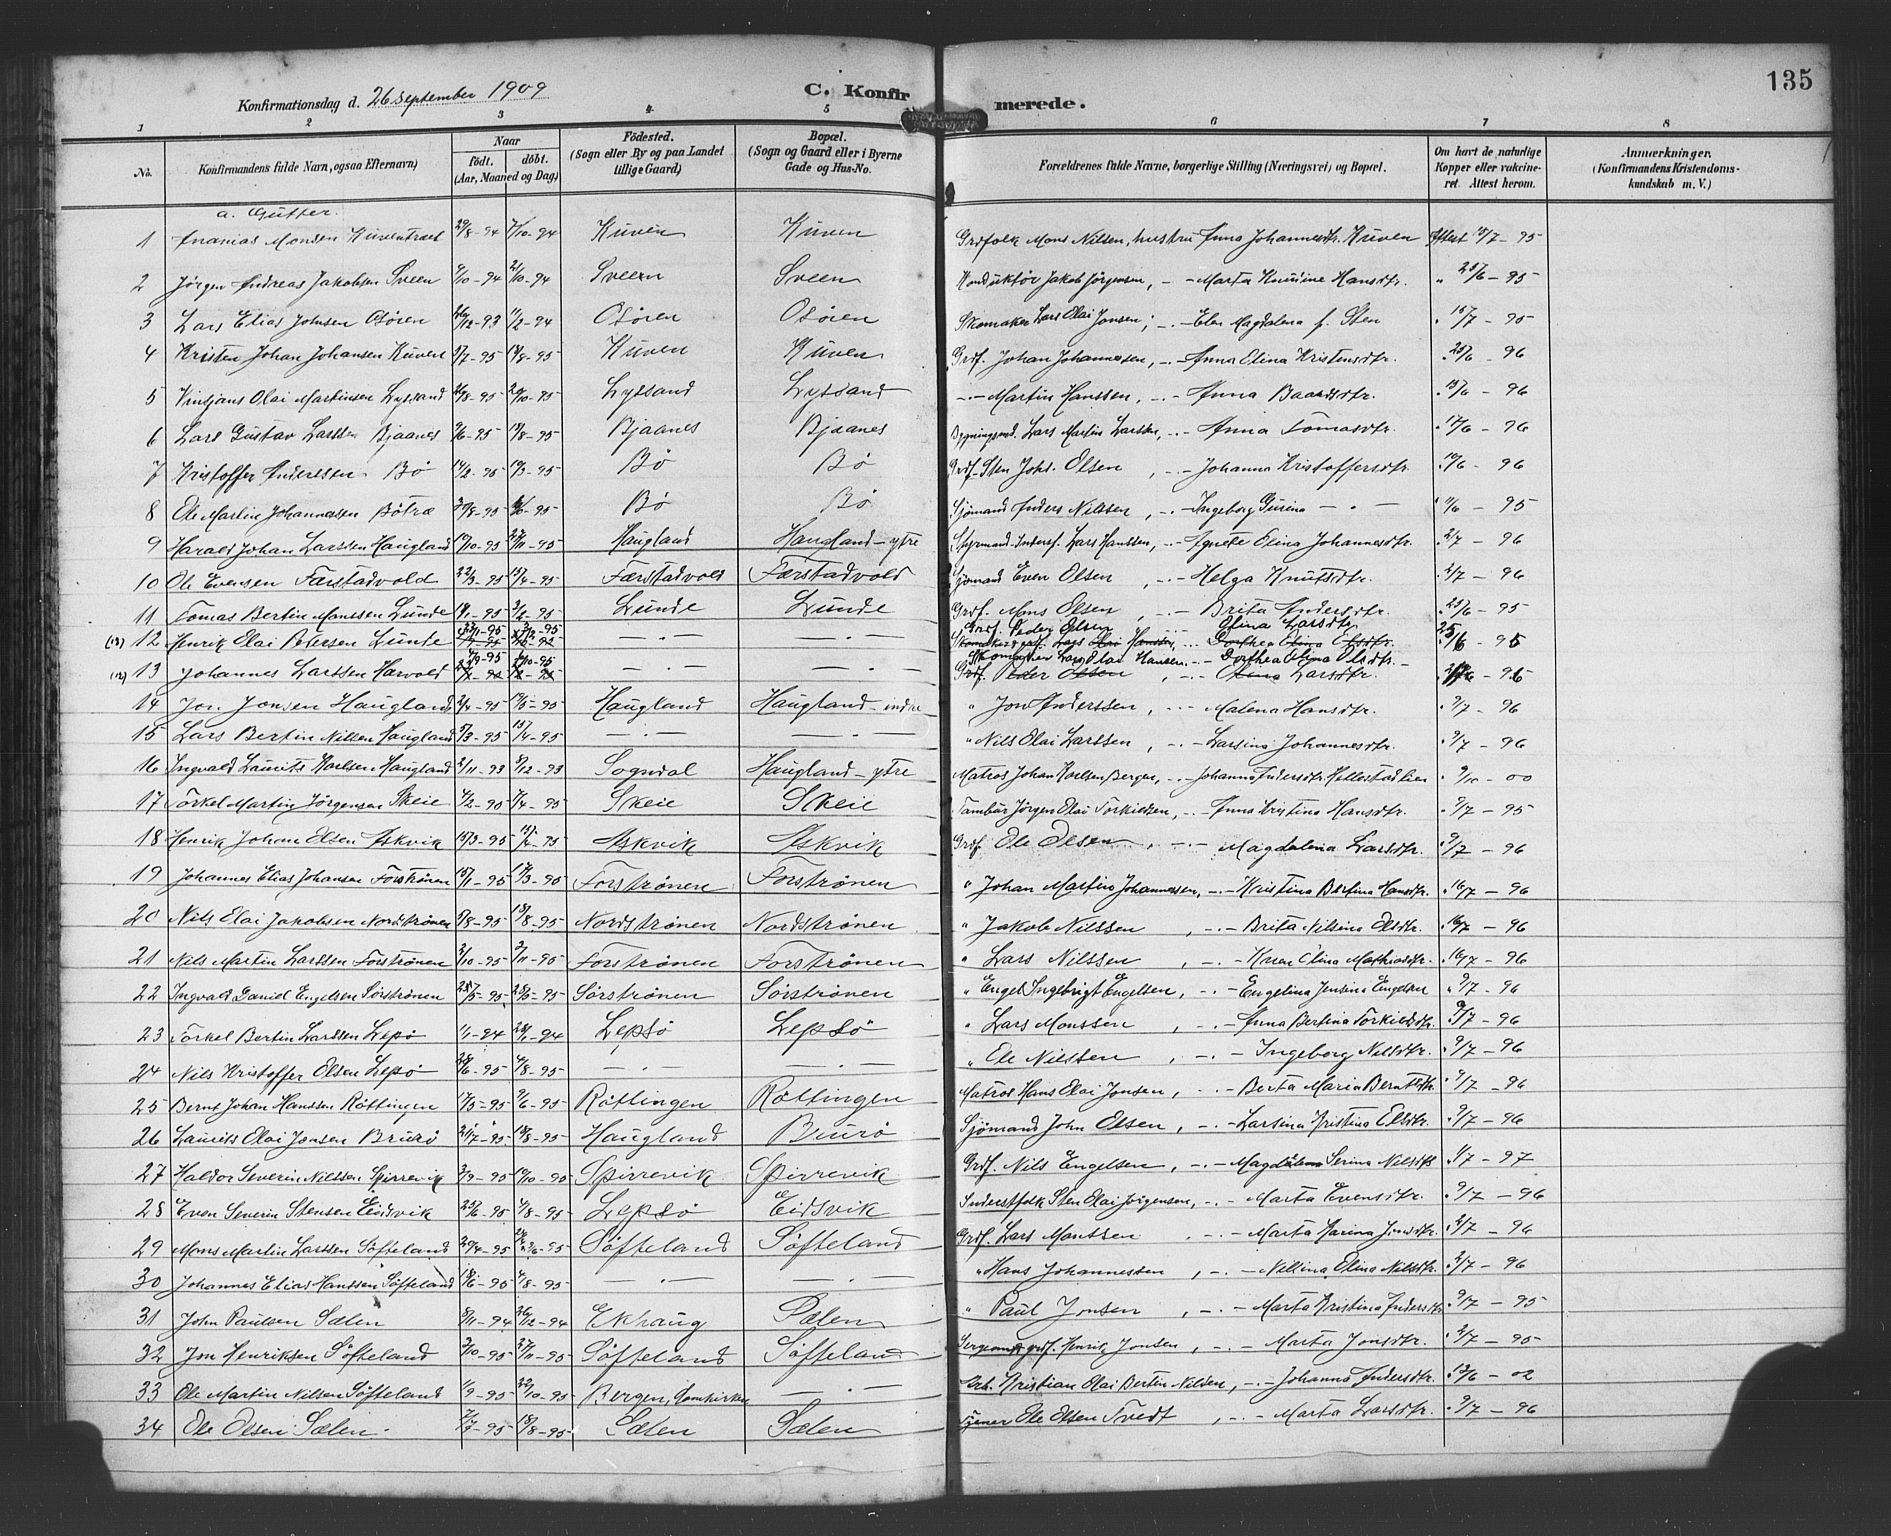 135
Konfirmationsdag d. 26 September 1909
C. Konfirmerede.
1 2 3 4 5 6 7 8
No.
Konfirmandens fulde Navn, ogsaa Efternavn)
Naar
födt. döbt.
(Aar, Maaned og Dag)
Födested.
(Sogn eller By og paa Landet tillige Gaard)
Bopæl.
(Sogn og Gaard eller i Byerne Gade og Hus-No.
Forældrenes fulde Navne, borgerlige Stilling (Næringsvei) og Bopæl.
Om havt de naturlige Kopper eller vakcineret. Attest herom.
Anmærkninger.
(Konfirmandens Kristendomskundskab m. V.)
a. Gutter.
1 Ananias Monsen Kuventræet 29/8-94 7/10-94 Kuven Kuven Grdfolk Mons Nilsen, hustru Anna Johannesdtr. Kuven Attest -95
2 Jörgen Andreas Jakobsen Sveen 9/10-94 21/10-94 Sveen Sveen Konduktør Jakob Jørgensen, -.- Marta Knudine Hansdtr. " 25/6-95
3 Lars Elias Johnsen Osøren 26/12-93 11/2-94 Osøren Osøren Skomaker Lars Olai Jonsen; -.- Elen Magdalena f. Sten " 15/7-95
4 Kristen Johan Johansen Kuven 5/7-95 18/8-95 Kuven Kuven Grdf. Johan Johannessen, -.- Anna Olina Kristensdtr. " 25/6-96
5 Vinsjans Olai Martinsen Lyssand -95 20/10-95 Lyssand Lyssand -.- Martin Hanssen, -.- Anna Baardsdtr. -96
6 Lars Gustav Larssen Bjaanes 9/6-95 -95 Bjaanes Bjaanes Bygningssnd. Lars Martin Larssen, -.- Anna Tomasdtr. " 17/6-96
7 Kristoffer Anderssen Bø 14/2-95 -95 Bø Bø Grdf. Sten Johs. Olsen, -.- Johanna Kristoffersdtr. " -96
8 Ole Martin Johannessen Bøtræ -95 -95 Bø Bø Sjømand Anders Nilssen, -.- Ingeborg Gurina -.- " 11/6-95
9 Harald Johan Larssen Haugland 19/10-95 24/11-95 Haugland Haugland-ytre Styrmand Inderst. Lars Hanssen, -.- Agnete Olina Johannesdtr. 2/7-96
10 Ole Evensen Færstadvold 22/3-95 15/4-95 Færstadvold Færstadvold Sjømand Even Olsen, -.- Helga Knutsdtr. 2/7-96
11 Tomas Bertin Monssen Lunde -95 3/2-95 Lunde Lunde Grdf. Mons Olsen, -.- Brita Andersdtr. 25/6-95
(13) 12 Henrik Olai Petersen Lunde -95 -95 -.- -.- Grdf. Peder Olsen Olina Larsdtr. 25/6-95
Skomaker grdf. Lars Olai Hanssen, -.- Dorthea Olina Olsdtr.
(12) 13 Johannes Larssen Harvold -95 -95 -.- -.- Skomager Lars Olai Hansen, -.- Dorthea Olina Olsdtr. -96
Grdf. Peder Olsen, -.- Olina Larsdtr.
14 Jon Jonsen Haugland 2/4-95 19/5-95 Haugland Haugland-indre " Jon Anderssen, -.- Malena Hansdtr. 9/7-96
15 Lars Bertin Nilsen Haugland 5/3-95 15/4-95 -.- -.- " Nils Olai Larssen, -.- Larsina Johannesdtr. 9/7-96
16 Ingvald Laurits Karlsen Haugland 2/11-93 3/12-93 Sogndal Haugland-ytre Matros Johan Karlsen, Bergen, -.- Johanna Andersdtr. Hellestadlien 9/10-00
17 Torkel Martin Jörgensen Skeie 4/2-95 7/4-95 Skeie Skeie Tambur Jörgen Olai Torkildsen, -.- Anna Kristina Hansdtr. 9/7-95
18 Henrik Johan Olsen Askvik 13/3-95 15/4-95 Askvik Askvik Grdf Ole Olsen, -.- Magdalena Larsdtr. 9/7-96
19 Johannes Elias Johansen Forstrønen 15/1-95 17/3-95 Forstrønen Forstrønen " Johan Martin Johannessen, -.- Kristina Bertina Hansdtr. 16/7-96
20 Nils Olai Jakobsen Nordstrønen 5/8-95 18/8-95 Nordstrønen Nordstrønen " Jakob Nilssen, -.- Brita Nilsina Olsdtr. 16/7-96
21 Nils Martin Larssen Forstrønen 2/10-95 3/11-95 Forstrønen Forstrønen " Lars Nilssen, -.- Karen Olina Mathiasdtr. 16/7-96
22 Ingvald Daniel Engelsen Sørstrønen 25/5-95 23/6-95 Sørstrønen Sørstrønen " Engel Ingebrigt Engelsen, -.- Engelina Jensina Engelsen 9/7-96
23 Torkel Bertin Larssen Lepsø 1/1-94 28/1-94 Lepsø Lepsø " Lars Monssen, -.- Anna Bertina Torkildsdtr. 9/7-96
24 Nils Kristoffer Olsen Lepsø 28/6-95 4/8-95 -.- -.- " Ole Nilssen, -.- Ingeborg Nilsdtr. 9/7-96
25 Bernt Johan Hanssen Røttingen 17/5-95 9/6-95 Røttingen Røttingen Matros Hans Olai Jonsen, -.- Berta Maria Berntsdtr. 9/7-96
26 Laurits Olai Jonsen Bruro 21/7-95 18/8-95 Haugland Bruro Sjømand John Olsen, -.- Larsina Kristina Elsdtr. 9/7-96
27 Haldor Severin Nilssen Spirrevik 3/9-95 -95 Spirrevik Spirrevik Grdf. Nils Engelsen, -.- Magdalena Serina Nilsdtr. 1/7-97
28 Even Severin Stensen Eidsvik 23/6-95 4/8-95 Lepsø Eidsvik Inderstfolk Sten Olai Jørgensen, -.- Marta Evensdtr. 9/7-96
29 Mons Martin Larssen Søfteland 29/4-95 2/6-95 Søfteland Søfteland Grdf. Lars Monssen -.- Marta Karina Jonsdtr. 2/7-96
30 Johannes Elias Hanssen Søfteland 18/6-95 4/8-95 -.- -.- " Hans Johannessen, -.- Nilsina Olina Nilsdtr. 2/7-96
31 John Paulsen Sælen 8/11-94 26/12-94 Ekhaug Sælen " Paul Jonsen, -.- Marta Kristina Andersdtr. 9/7-95
32 Jon Henriksen Søfteland 2/10-95 24/11-95 Søfteland Søfteland Sergeant grdf. Henrik Jonsen, -.- Marta Jonsdtr. 2/7-95
33 Ole Martin Nilsen Søfteland 1/9-95 22/10-95 Bergen, Domkirken -.- Arb. Kristian Olai Bertin Nilsen, -.- Johanna Andersdtr. 13/6-02
34 Ole Olsen Sælen 7/7-95 18/8-95 Sælen Sælen Ole Olsen Tvedt, -.- Marta Larsdtr. 9/7-96